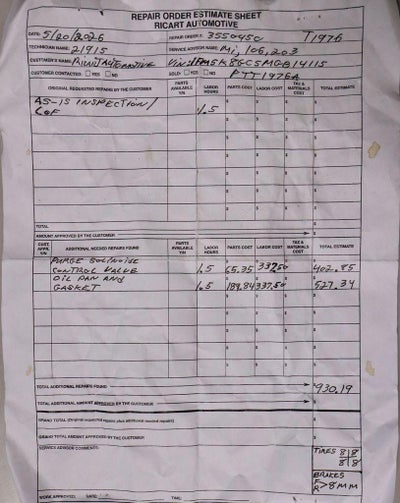 REPAIR ORDER ESTIMATE SHEET
RICART AUTOMOTIVE
DATE: 5/20/2026 REPAIR ORDER #: 3550450 T1976
TECHNICIAN NAME: 21915 SERVICE ADVISOR NAME: Mi, 106,203
CUSTOMER'S NAME: AUTOMOTIVE
CUSTOMER CONTACTED: YES NO SOLD: YES NO PTT1976A
ORIGINAL REQUESTED REPAIRS BY THE CUSTOMER PARTS AVAILABLE Y/N LABOR HOURS PARTS COST LABOR COST TAX & MATERIALS COST TOTAL ESTIMATE
AS-IS INSPECTION/ 1.5 $
COF $
TOTAL $
AMOUNT APPROVED BY THE CUSTOMER $
CUST. APPR. Y/N ADDITIONAL NEEDED REPAIRS FOUND PARTS AVAILABLE Y/N LABOR HOURS PARTS COST LABOR COST TAX & MATERIALS COST TOTAL ESTIMATE
PURGE SOLINOISE
CONTROL VALVE 1.5 65.35 337.50 402.85
OIL PAN AND
GASKET 1.5 189.84 337.50 527.34
TOTAL ADDITIONAL REPAIRS FOUND $930.19
TOTAL ADDITIONAL AMOUNT APPROVED BY THE CUSTOMER $
GRAND TOTAL $
GRAND TOTAL AMOUNT APPROVED BY THE CUSTOMER $
SERVICE ADVISOR COMMENTS: TIRES 8|8
8|8
BRAKES
F
R >8MM
WORK APPROVED: DATE: TIME: